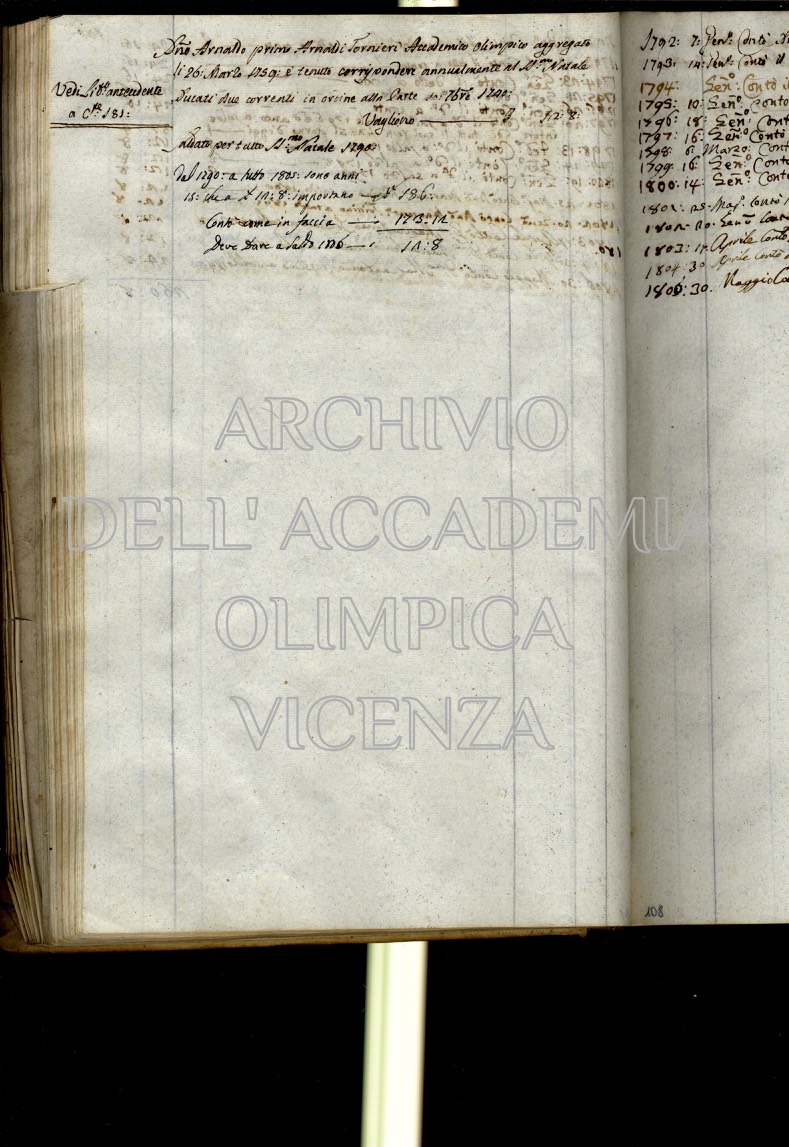 Vedi Libº antecedente
a Cte 181:
Dño Arnaldo primo Arnaldi Tornieri Accademico Olimpico aggregato
li 26: Marzo 1759: è tenuto corrispondere annualmente al Smo Natale
Ducati due correnti in ordine alla Parte 10: 7bre 1741:
Vagliono 12: 8:
Saldato per tutto SSmo Natale 1790:
Dal 1790: a tutto 1805: sono anni
15: che a 12: 8: importano 186:
Contò come in faccia 173: 12
Deve Dare a Saldo 1806 12: 8
1792: 7: Genº: Contò
1793: 14: Genº: Contò il
1794: Genº: Contò
1795: 10: Genº: Contò
1796: 18: Genº: Contò
1797: 16: Genº: Contò
1798: 6: Marzo: Contò
1799: 16: Genº: Contò
1800: 14: Genº: Contò
1801: 25: Magº: Contò
1802: 20: Genº Contò
1803: 17: Aprile Contò
1804: 30 Aprile contò
1806: 30. Maggio
108
ARCHIVIO
DELL' ACCADEMIA
OLIMPICA
VICENZA